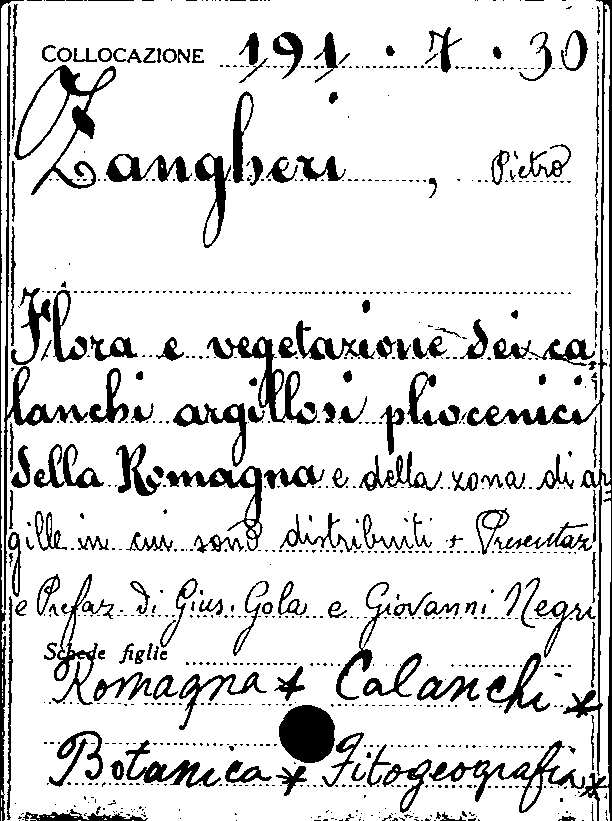 COLLOCAZIONE 191 . 7 . 30
Zangheri , Pietro
Flora e vegetazione dei ca
lanchi argillosi pliocenici
della Romagna e della zona di ar
gille in cui sono distribuiti + Presentaz
e Prefaz. di Gius. Gola e Giovanni Negri
Schede figlie
Romagna * Calanchi *
Botanica * Fitogeografia *